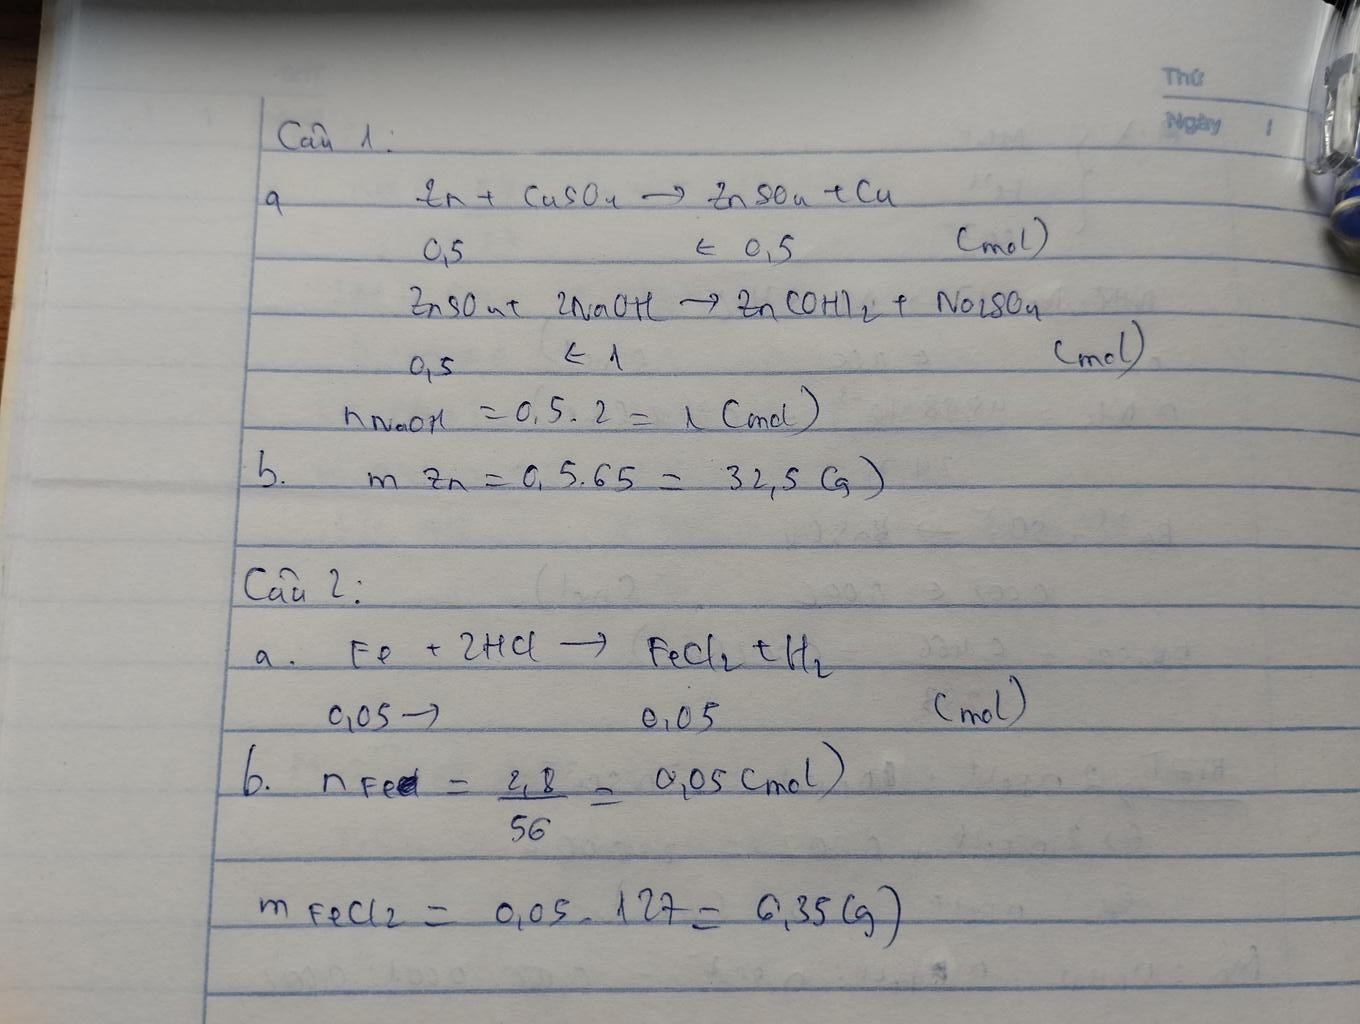 Thứ
Ngày /
Câu 1:
a Zn + CuSO4 → ZnSO4 + Cu
0,5 ← 0,5 (mol)
ZnSO4 + 2NaOH → Zn(OH)2 + Na2SO4
0,5 ← 1 (mol)
nNaOH = 0,5.2 = 1 (mol)
b. m Zn = 0,5.65 = 32,5 (g)
Câu 2:
a. Fe + 2HCl → FeCl2 + H2
0,05 → 0,05 (mol)
b. n Fe = 2,8/56 = 0,05 (mol)
m FeCl2 = 0,05 . 127 = 6,35 (g)